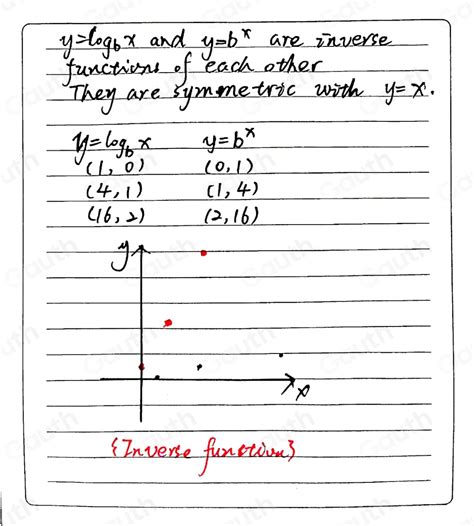 y=log_b x and y=b^x are inverse
functions of each other
They are symmetric with y=x.
y=log_b x y=b^x
(1, 0) (0, 1)
(4, 1) (1, 4)
(16, 2) (2, 16)
y
x
{Inverse function}
Gauth